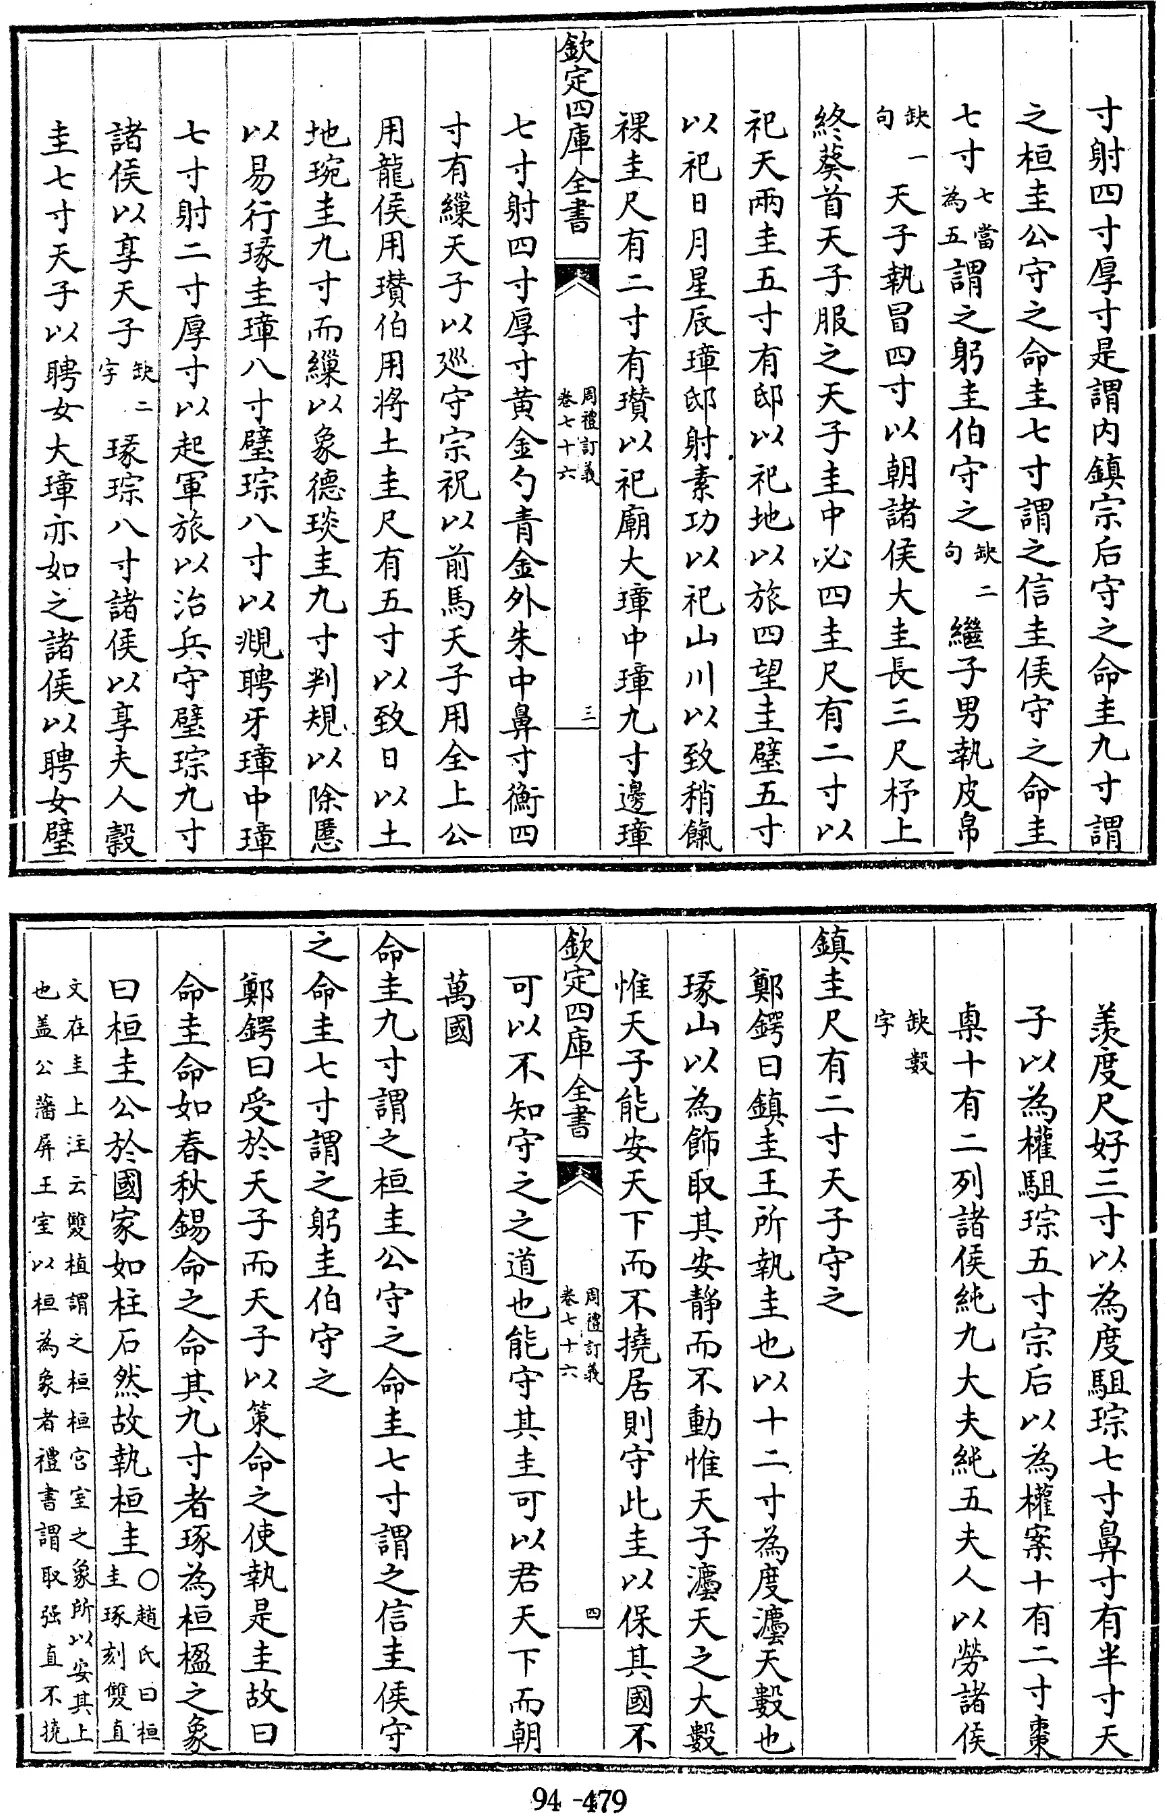 寸射四寸厚寸是謂内鎮宗后守之命圭九寸謂
之桓圭公守之命圭七寸謂之信圭侯守之命圭
七寸七當為五謂之躬圭伯守之缺二句繼子男執皮帛
缺一句天子執冒四寸以朝諸侯大圭長三尺杼上
終葵首天子服之天子圭中必四圭尺有二寸以
祀天兩圭五寸有邸以祀地以旅四望圭璧五寸
以祀日月星辰璋邸射素功以祀山川以致稍餼
祼圭尺有二寸有瓚以祀廟大璋中璋九寸邊璋
欽定四庫全書 周禮訂義卷七十六 三
七寸射四寸厚寸黄金勺青金外朱中鼻寸衡四
寸有繅天子以廵守宗祝以前馬天子用全上公
用龍侯用瓚伯用将土圭尺有五寸以致日以土
地琬圭九寸而繅以象德琰圭九寸判規以除慝
以易行瑑圭璋八寸璧琮八寸以覜聘牙璋中璋
七寸射二寸厚寸以起軍旅以治兵守璧琮九寸
諸侯以享天子缺二字瑑琮八寸諸侯以享夫人縠
圭七寸天子以聘女大璋亦如之諸侯以聘女璧
羨度尺好三寸以為度駔琮七寸鼻寸有半寸天
子以為權駔琮五寸宗后以為權案十有二寸棗
㮚十有二列諸侯純九大夫純五夫人以勞諸侯
缺數字
鎮圭尺有二寸天子守之
鄭鍔曰鎮圭王所執圭也以十二寸為度灋天數也
瑑山以為飾取其安靜而不動惟天子灋天之大數
惟天子能安天下而不撓居則守此圭以保其國不
欽定四庫全書 周禮訂義卷七十六 四
可以不知守之之道也能守其圭可以君天下而朝
萬國
命圭九寸謂之桓圭公守之命圭七寸謂之信圭侯守
之命圭七寸謂之躬圭伯守之
鄭鍔曰受於天子而天子以策命之使執是圭故曰
命圭命如春秋錫命之命其九寸者琢為桓楹之象
曰桓圭公於國家如柱石然故執桓圭○趙氏曰桓圭琢刻雙直
文在圭上注云雙植謂之桓桓宫室之象所以安其上
也盖公藩屏王室以桓為象者禮書謂取强直不撓
94-479